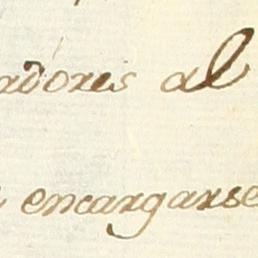 adores al
encargarse